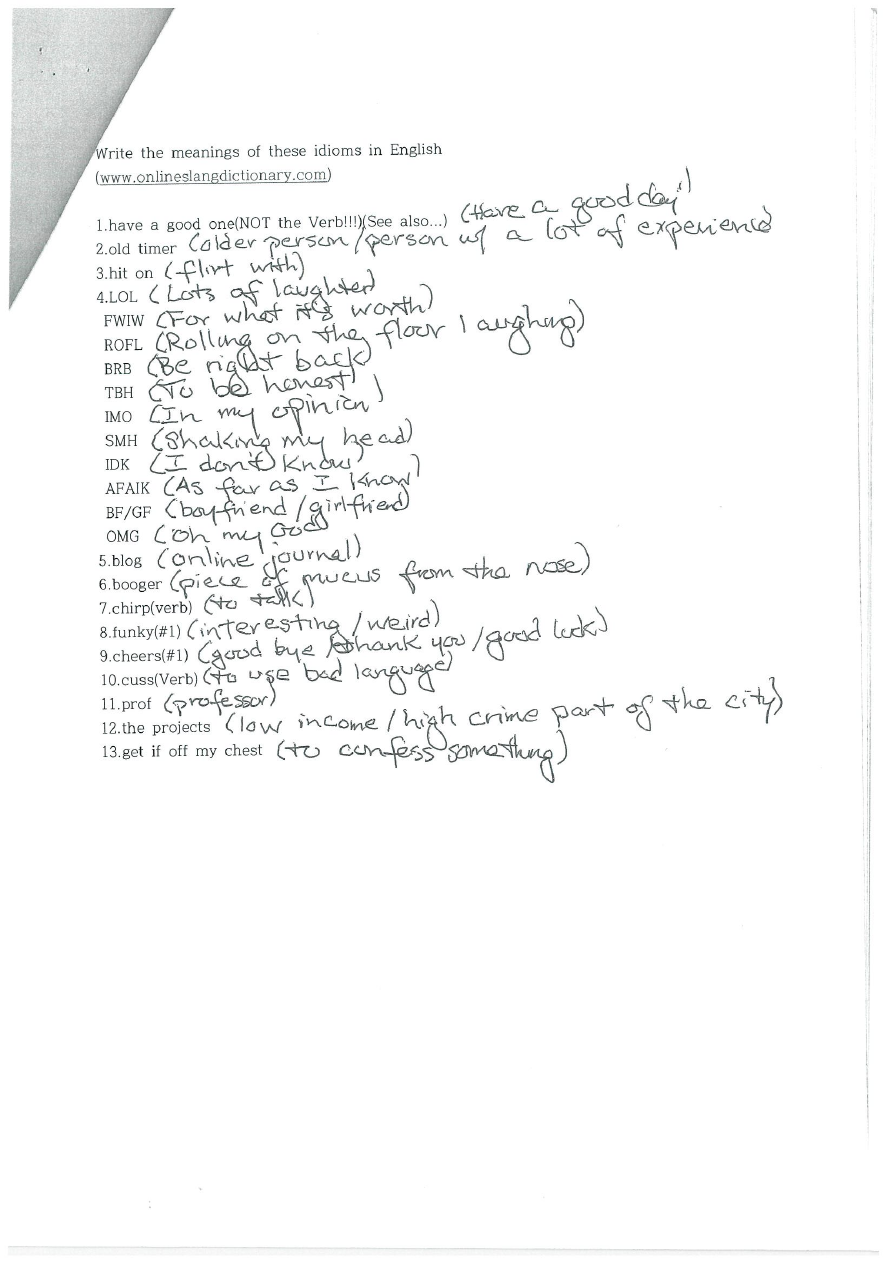 Write the meanings of these idioms in English
(www.onlineslangdictionary.com)
1.have a good one(NOT the Verb!!!)(See also...) (Have a good day")
2.old timer (older person/person w/ a lot of experience)
3.hit on (flirt with)
4.LOL (Lots of laughter)
FWIW (For what it's worth)
ROFL (Rolling on the floor laughing)
BRB (Be right back)
TBH (To be honest)
IMO (In my opinion)
SMH (Shaking my head)
IDK (I don't know)
AFAIK (As far as I know)
BF/GF (boyfriend/girlfriend)
OMG (Oh my God)
5.blog (online journal)
6.booger (piece of mucus from the nose)
7.chirp(verb) (to talk)
8.funky(#1) (interesting/weird)
9.cheers(#1) (good bye/thank you/good luck)
10.cuss(Verb) (to use bad language)
11.prof (professor)
12.the projects (low income/high crime part of the city)
13.get if off my chest (to confess something)